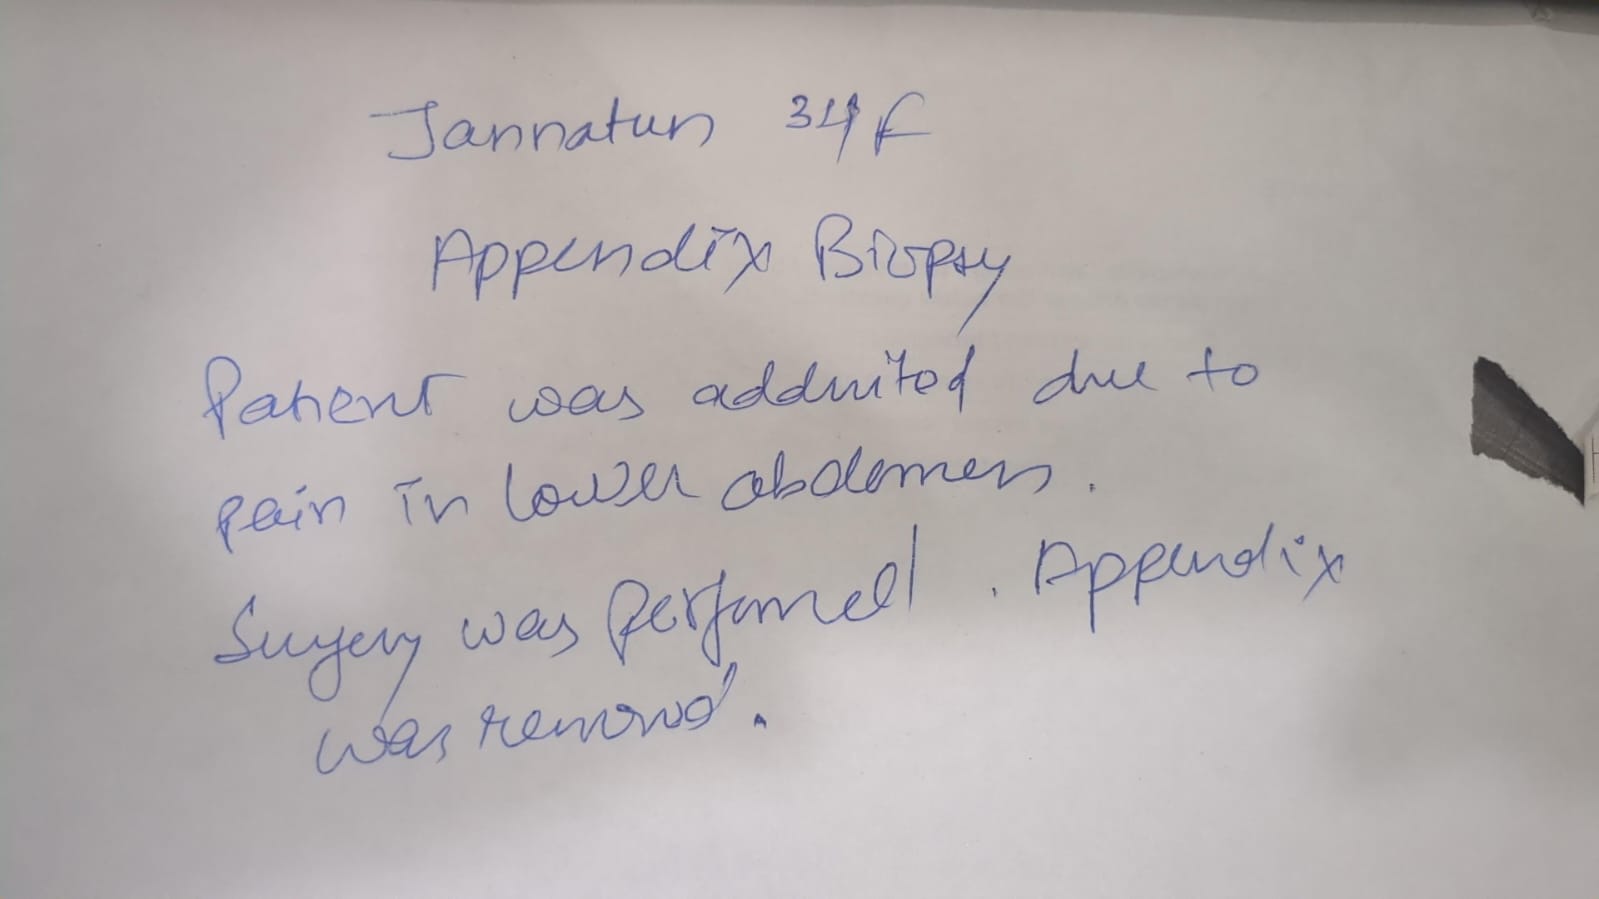 Jannatun 34 F
Appendix Biopsy
Patient was addmited due to
pain in lower abdomen.
Surgery was performed. Appendix
was removed.